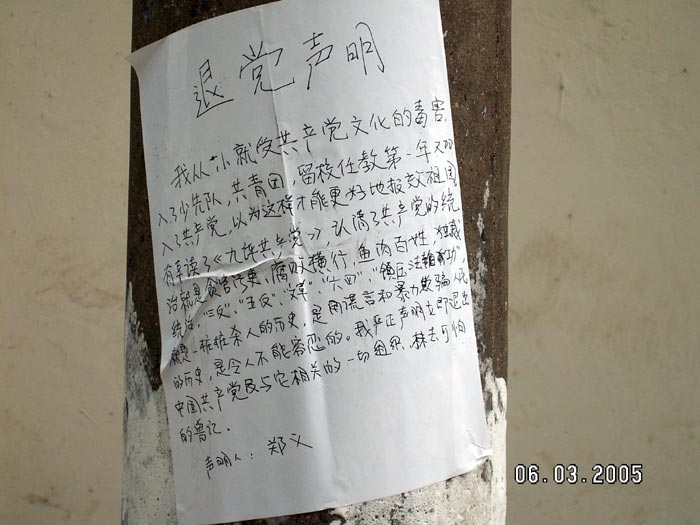 退党声明
我从小就受共产党文化的毒害,
入了少先队,共青团,留校任教第一年又加
入了共产党,以为这样才能更好地报效祖国
有幸读了《九评共产党》,认清了共产党的统
治就是贪官污吏,腐败横行,鱼肉百姓,独裁
统治,“三反”,“五反”,“文革”,“六四”,“镇压法轮功”,
就是一桩桩杀人的历史,是用谎言和暴力欺骗人民
的历史,是令人不能容忍的。我严正声明立即退出
中国共产党及与它相关的一切组织,抹去可怕
的兽记.
声明人:郑义
06.03.2005